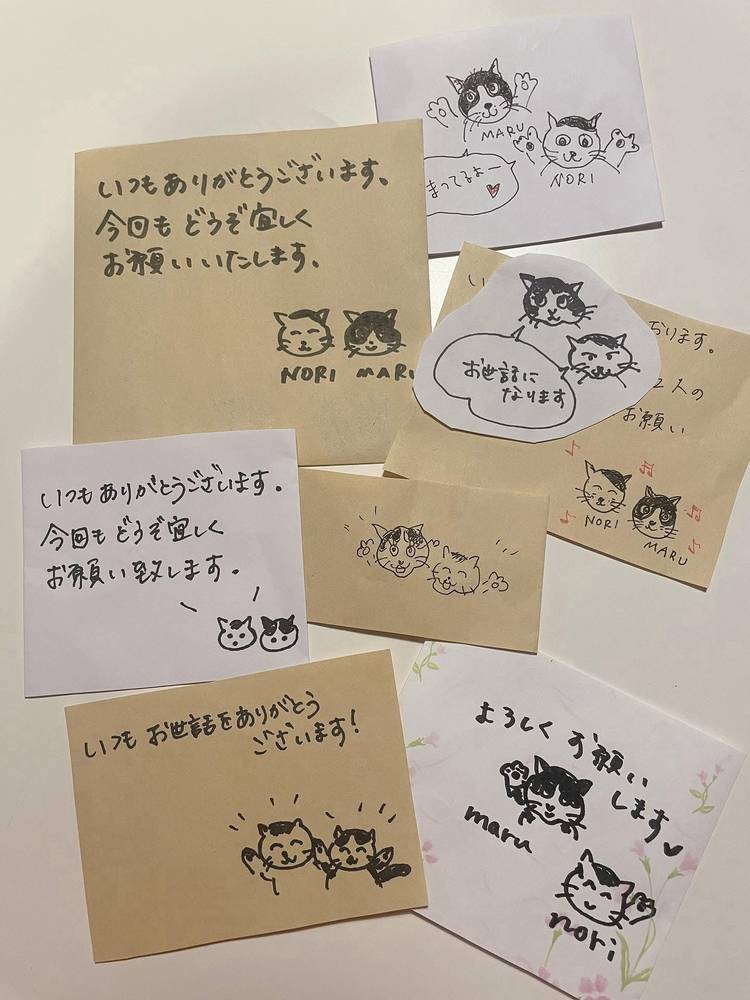 MARU
NORI
まってるよー
いつもありがとうございます。
今回もどうぞ宜しく
お願いいたします。
NORI MARU
い
おります。
2人の
お願い
お世話に
なります
NORI
MARU
いつもありがとうございます。
今回もどうぞ宜しく
お願い致します。
いつもお世話をありがとう
ございます!
よろしくお願い
します
maru
nori